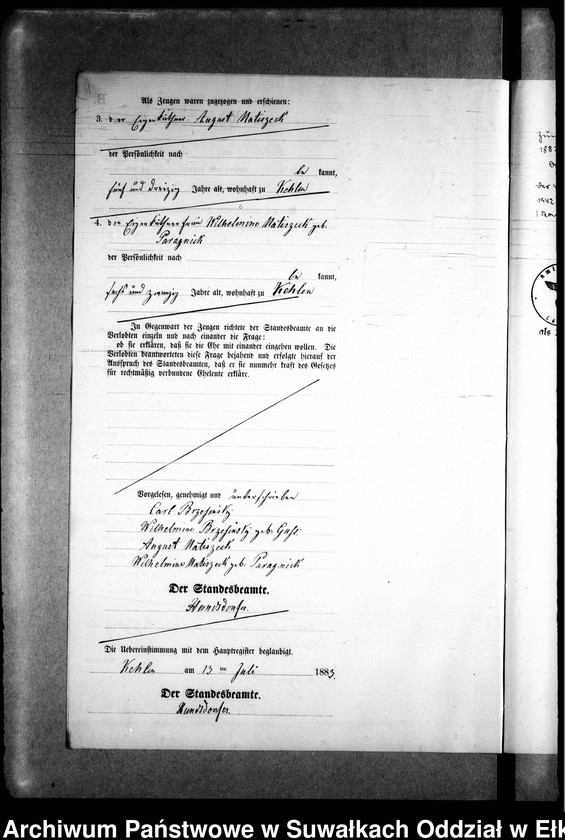 Als Zeugen waren zugezogen und erschienen:
3. der Eigenkäthner August Matiszeck
der Persönlichkeit nach
be kannt,
fünf und dreizig Jahre alt, wohnhaft zu Kehlen
4. die Eigenkäthnerfrau Wilhelmine Matiszeck geb.
Paragnick
der Persönlichkeit nach
be kannt,
sechs und zwanzig Jahre alt, wohnhaft zu Kehlen
In Gegenwart der Zeugen richtete der Standesbeamte an die
Verlobten einzeln und nach einander die Frage:
ob sie erklären, daß sie die Ehe mit einander eingehen wollen. Die
Verlobten beantworteten diese Frage bejahend und erfolgte hierauf der
Ausspruch des Standesbeamten, daß er sie nunmehr kraft des Gesetzes
für rechtmäßig verbundene Eheleute erkläre.
Vorgelesen, genehmigt und unterschrieben
Carl Brzesinsky
Wilhelmine Brzesinsky geb.
August Matiszeck
Wilhelmine Matiszeck geb. Paragnick
Der Standesbeamte.
Hundsdörfer.
Die Uebereinstimmung mit dem Hauptregister beglaubigt.
Kehlen am 13 ten Juli 1883.
Der Standesbeamte.
Hundsdörfer.
Archiwum Państwowe w Suwałkach Oddział w Ełk